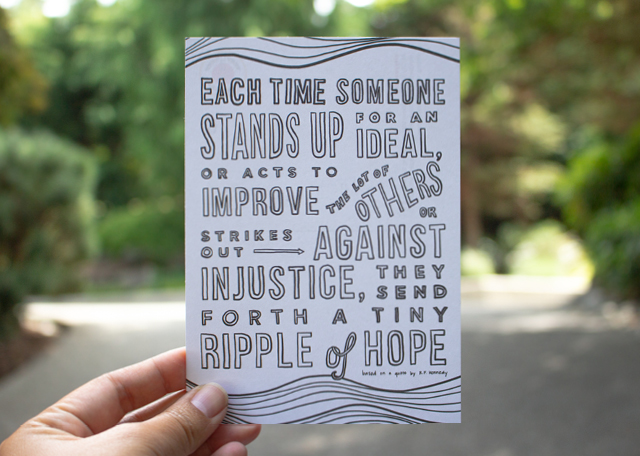 EACH TIME SOMEONE
STANDS UP FOR AN IDEAL,
OR ACTS TO
IMPROVE THE LOT OF OTHERS OR
STRIKES OUT AGAINST
INJUSTICE, THEY SEND
FORTH A TINY
RIPPLE of HOPE
based on a quote by R.F. Kennedy